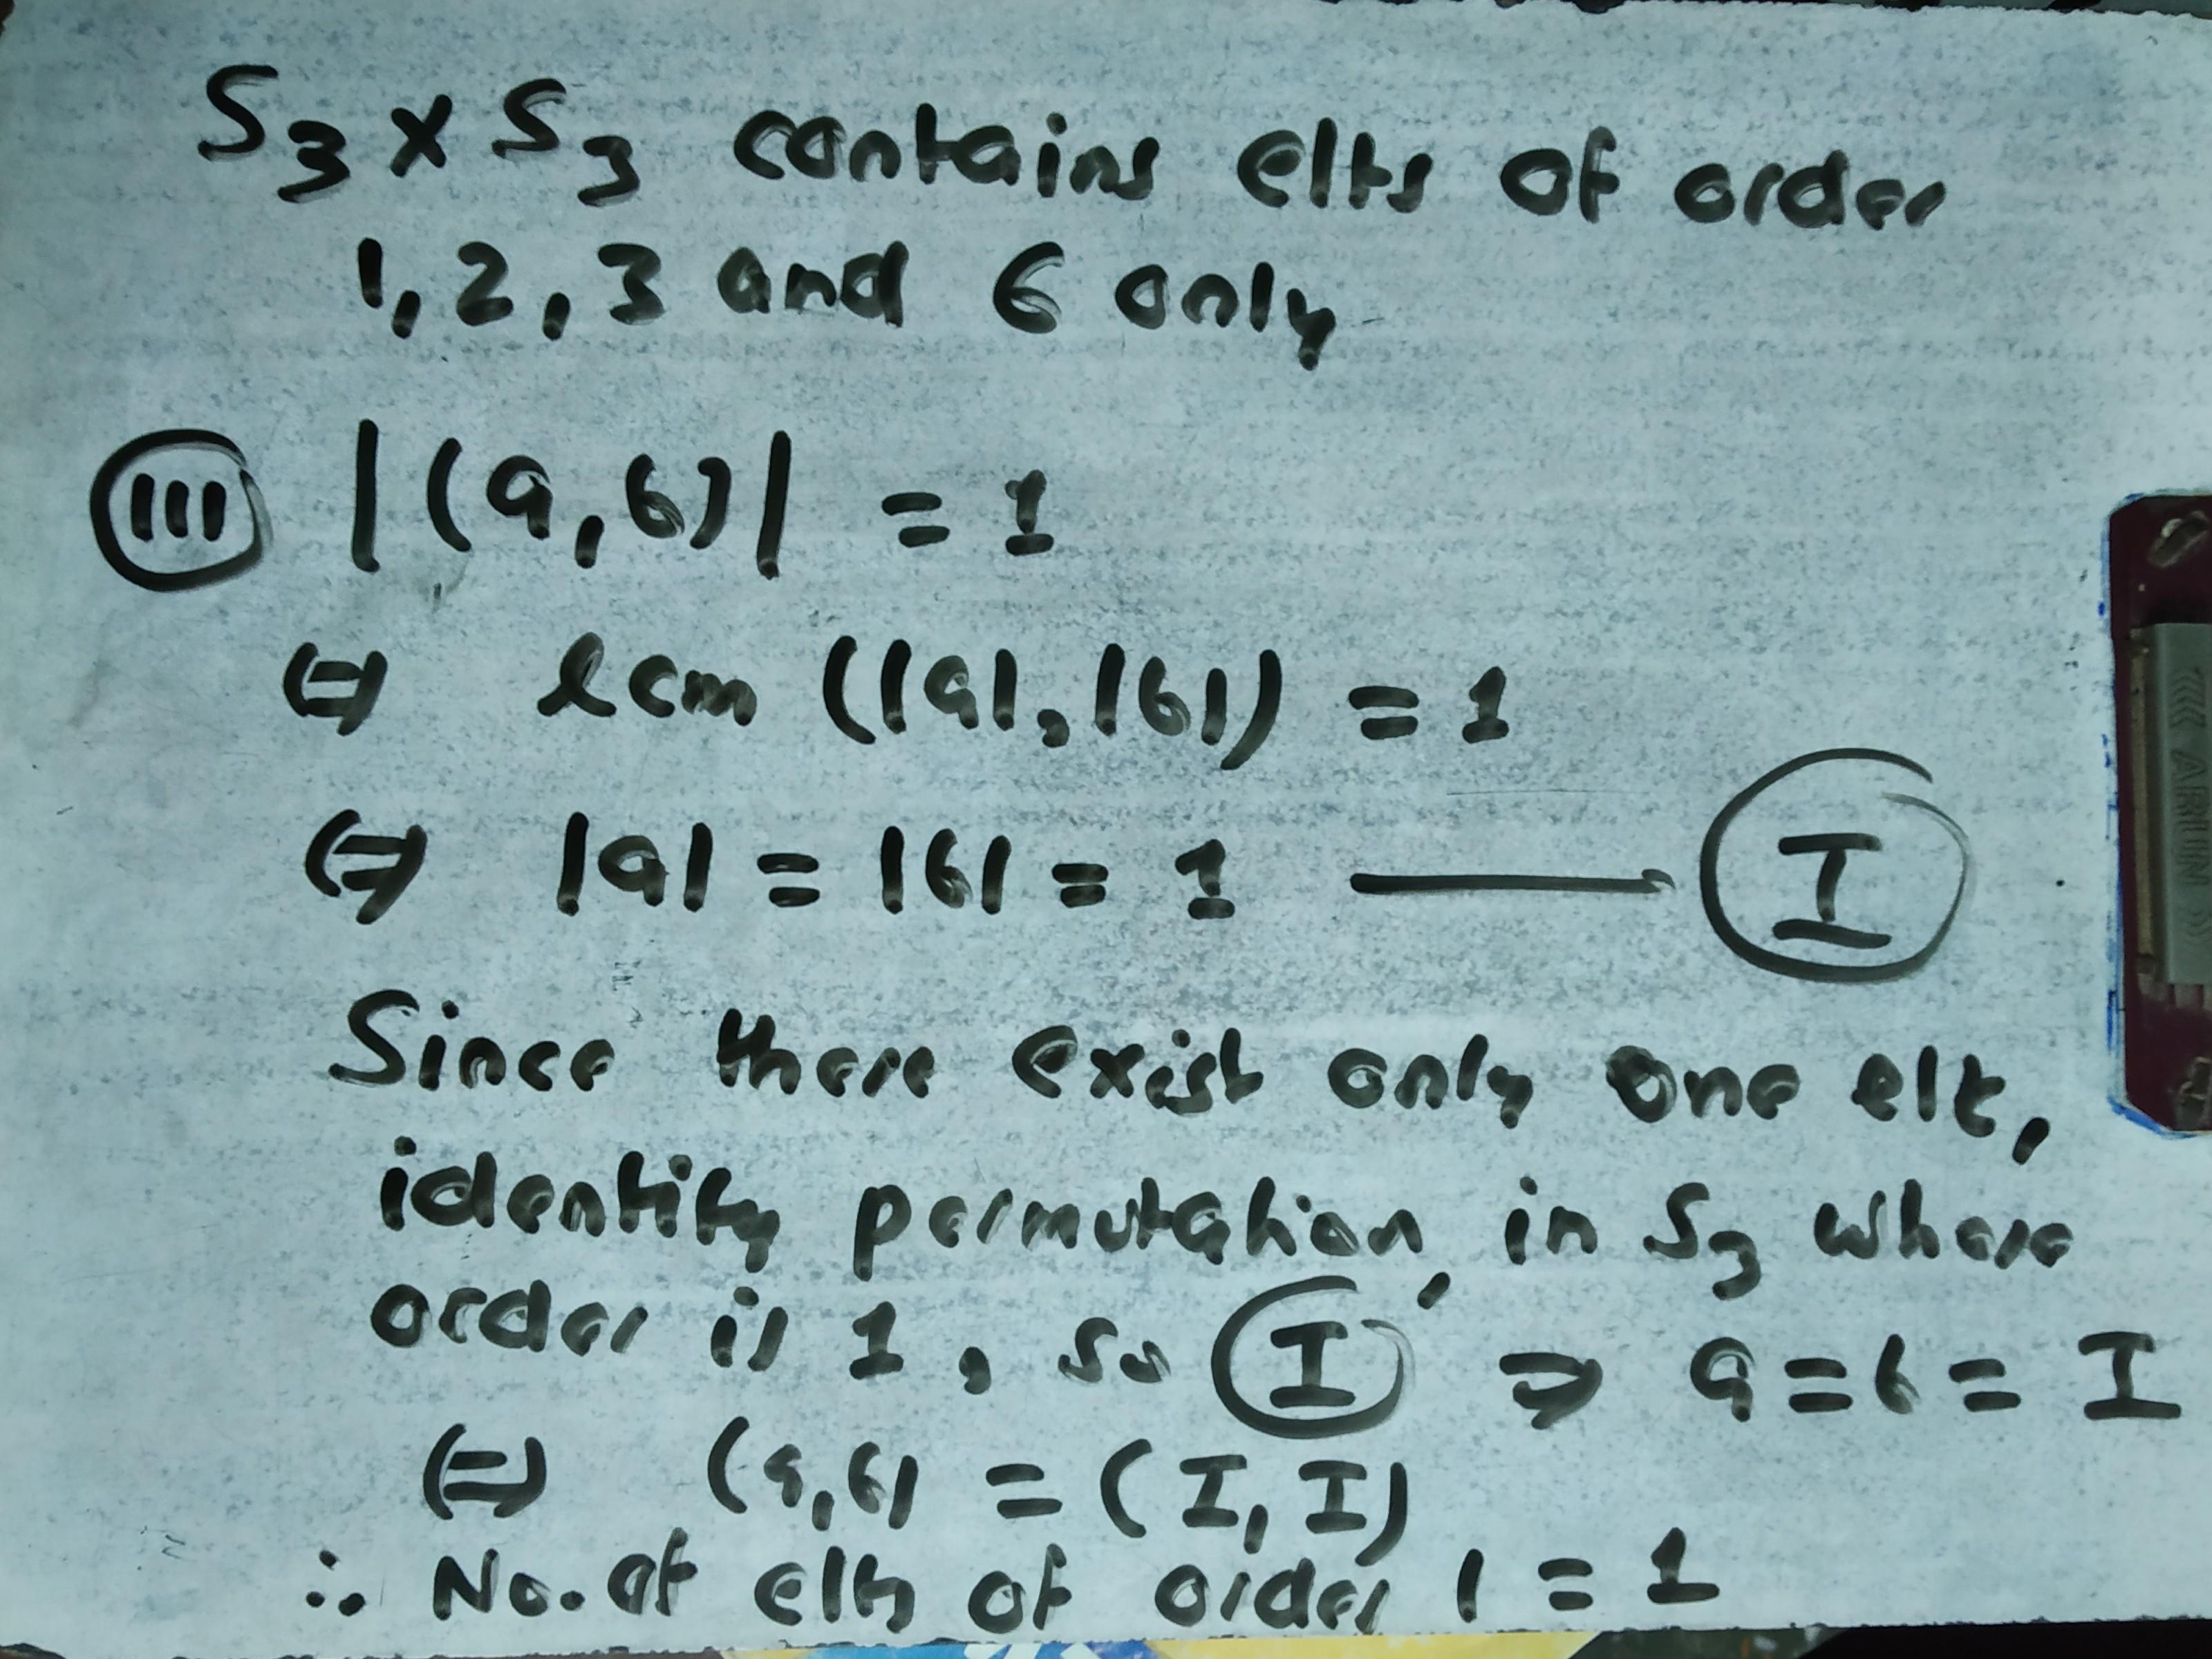 S₃ × S₃ contains elts of order
1, 2, 3 and 6 only
(III) |(a,b)| = 1
⇔ lcm (|a|, |b|) = 1
⇔ |a| = |b| = 1 —— (I)
Since there exist only one elt,
identity permutation, in S₃ whose
order is 1, so (I) ⇒ a = b = I
⇔ (a,b) = (I, I)
∴ No. of elts of order 1 = 1